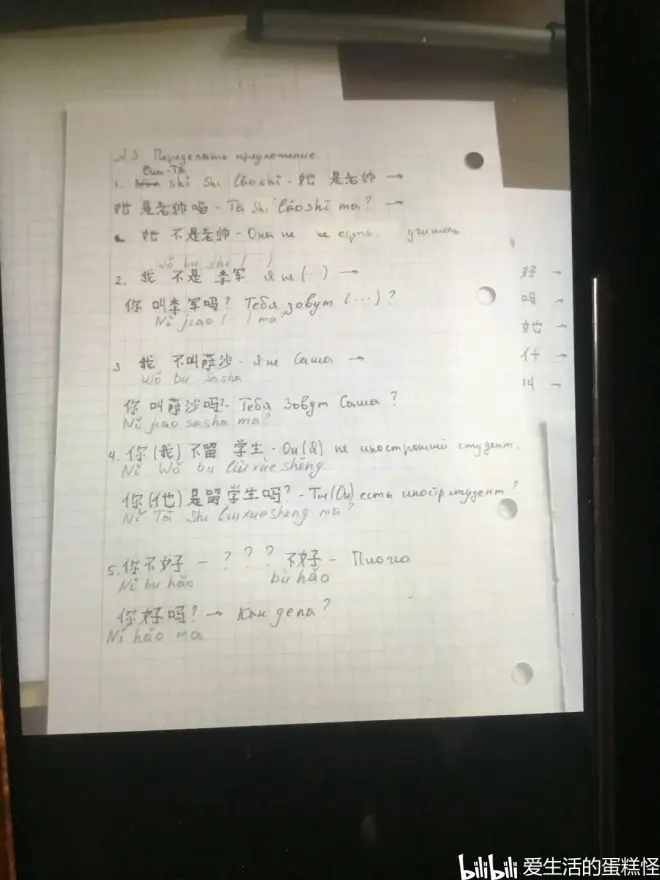 №3 Переделать предложение.
Она-Tā
1. shì Shì lǎoshī - 她 是老师 →
她 是老师吗 - Tā Shì lǎoshī ma? →
她 不是老师 - Она не не есть учитель
Wǒ bu shì (...)
2. 我 不是 李军 Я не (...) →
你 叫李军吗? Тебя зовут (...)?
Nǐ jiào (...) ma
3 我 不叫萨沙 - Я не Саша →
Wǒ bu sasha
你 叫萨沙吗? - Тебя Зовут Саша?
Nǐ jiao sasha ma?
4. 你(我)不留 学生 - Он(Я) не иностранный студент.
Nǐ Wǒ bu liúxuéshēng
你(他)是留学生吗? - Ты(Он) есть иностр студент?
Nǐ Tā Shì liuxuesheng ma?
5. 你不好 - ? ? ? 不好 - Плохо
Nǐ bu hǎo bù hǎo
你好吗? → Как дела?
Nǐ hǎo ma
好 →
吗 →
她 →
什 →
叫 →
bilibili 爱生活的蛋糕怪